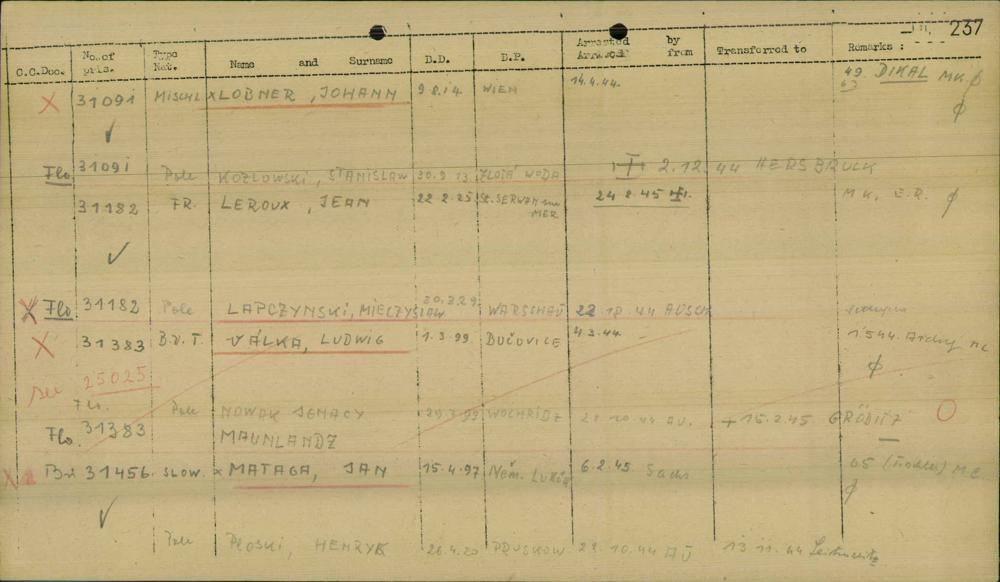 237
C.C.Doc. No.of pris. Type Nat. Name and Surname B.D. B.P. Arrested Arrived by from Transferred to Remarks :
X 31091 MISCHL x LOBNER , JOHANN 9 8.14. WIEN 14.4.44. 49 63 DIKAL MK ϕ
ϕ
✓
Flo 31091 Pole KOZLOWSKI, STANISLAW 30.9 13 ZLOTA WODA 2.12.44 HERSBRUCK
31182 FR. LEROUX , JEAN 22 2.25 St. SERWAN sur MER 24 2.45 MK, E.R. ϕ
✓
X Flo 31182 Pole LAPCZYNSKI, MIECZYSLAW 30.3.29. WARSCHAU 22 10.44 AUSCH
X 31383 B.V. T. VÁLKA, LUDWIG 1.3.99. BUČOVICE 4.3.44. 1544.
ϕ
25025
Flo. Pole NOWAK IGNACY 10.44 AU. + 15.2.45 GRÖDITZ O
Flo. 31383 MAUNLANDZ
X 31456. SLOW. x MATAGA, JAN 15.4.97 Něm. 6.2.45. Sachs 65 M.C.
ϕ
✓
Pole PŁOSKI, HENRYK 26.4.20 PRUSKOW 29.10.44 AU 13 11.44 Leitmeritz